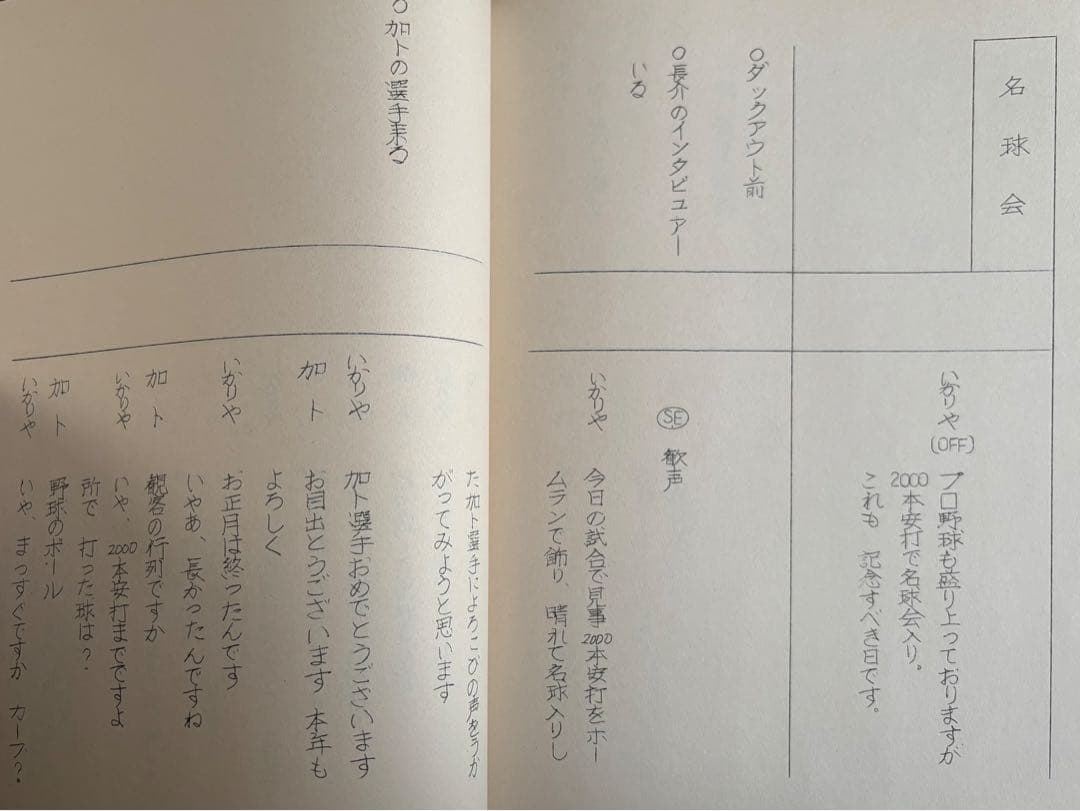 名球会
いかりや(OFF)
プロ野球も盛り上っておりますが
2000本安打で名球会入り。
これも 記念すべき日です。
○ダックアウト前
○長介のインタビュアー
いる
SE 歓声
いかりや
今日の試合で見事2000本安打をホー
ムランで飾り、晴れて名球入りし
た加ト選手によろこびの声をうか
がってみようと思います
○加トの選手来る
いかりや 加ト選手おめでとうございます
加ト お目出とうございます 本年も
よろしく
いかりや お正月は終ったんです
いやあ、長かったんですね
加ト 観客の行列ですか
いかりや いや、2000本安打までですよ
所で 打った球は?
加ト 野球のボール
いかりや いや、まっすぐですか カーブ?